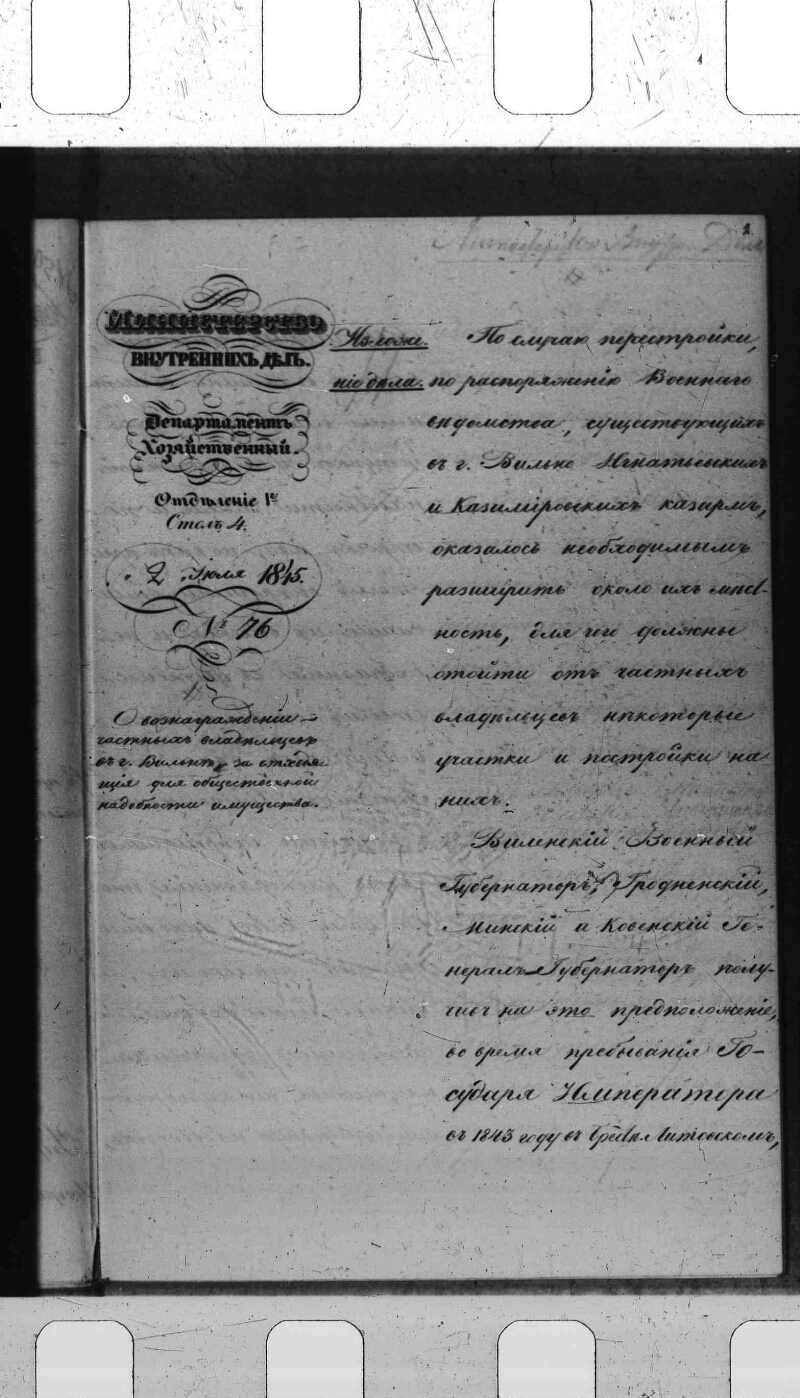 2
Министерство Внутр. Дѣлъ
МИНИСТЕРСТВО
ВНУТРЕННИХЪ ДѢЛЪ.
Департаментъ
Хозяйственный.
Отдѣленіе 1е
Столъ 4.
2 Июля 1845.
№ 76
О вознагражденіи
частныхъ владѣльцевъ
въ г. Вильнѣ, за отходя
щія для общественной
надобности имущества.
Изложе
ніе дѣла.
По случаю перестройки,
по распоряженію Военнаго
вѣдомства, существующихъ
въ г. Вильно Игнатьевскихъ
и Казимировскихъ казармъ,
оказалось необходимымъ
разширить около ихъ мѣст-
ность, для чего должны
отойти отъ частныхъ
владѣльцевъ нѣкоторые
участки и постройки на
нихъ.
Виленскій Военный
Губернаторъ, Гродненскій,
Минскій и Ковенскій Ге-
нералъ-Губернаторъ полу-
чивъ на это предположеніе,
во время пребыванія Го-
сударя Императора
въ 1843 году въ Брестѣ Литовскомъ,